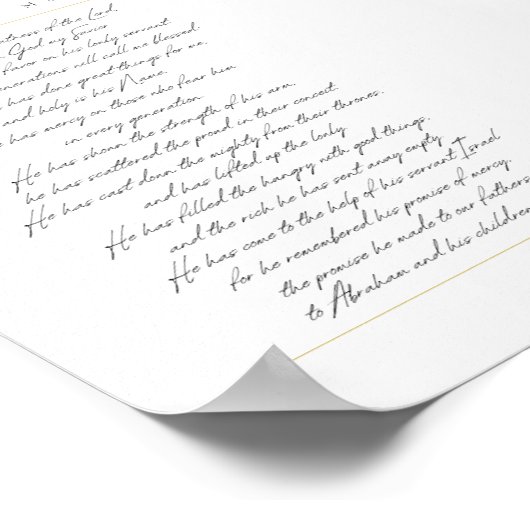 atness of the Lord,
God my Savior
favor on his lowly servant.
enerations will call me blessed:
has done great things for me,
and holy is his Name.
has mercy on those who fear him
in every generation.
He has shown the strength of his arm,
he has scattered the proud in their conceit.
He has cast down the mighty from their thrones,
and has lifted up the lowly.
He has filled the hungry with good things,
and the rich he has sent away empty.
He has come to the help of his servant Israel
for he remembered his promise of mercy,
the promise he made to our fathers
to Abraham and his children